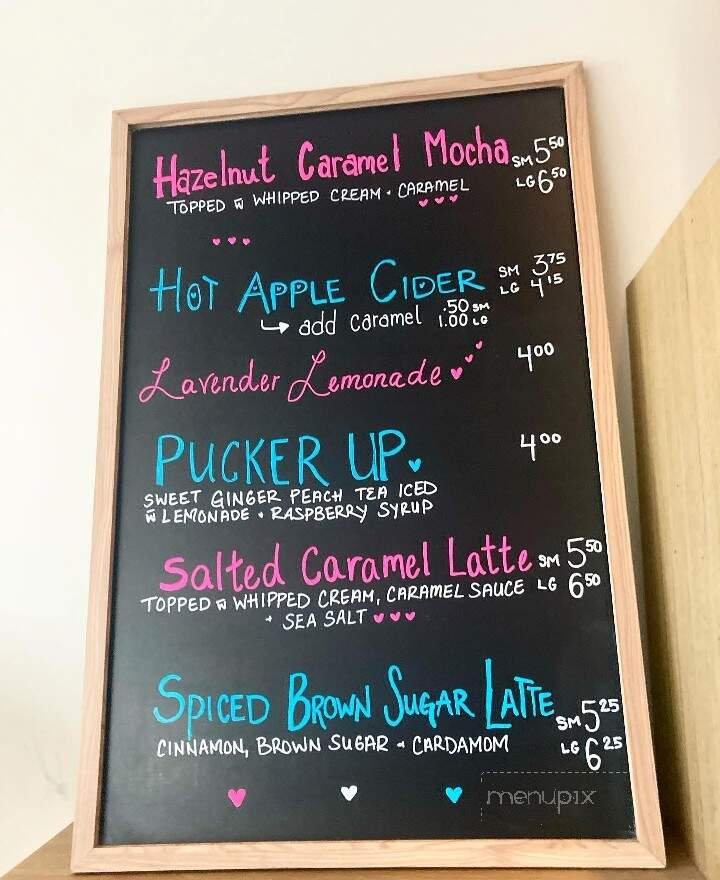 Hazelnut Caramel Mocha SM 5.50
TOPPED w WHIPPED CREAM + CARAMEL LG 6.50
HOT APPLE CIDER SM 3.75
LG 4.15
↳ add caramel .50 SM
1.00 LG
Lavender Lemonade 4.00
PUCKER UP 4.00
SWEET GINGER PEACH TEA ICED
w LEMONADE + RASPBERRY SYRUP
Salted Caramel Latte SM 5.50
TOPPED w WHIPPED CREAM, CARAMEL SAUCE LG 6.50
+ SEA SALT
SPICED BROWN SUGAR LATTE SM 5.25
CINNAMON, BROWN SUGAR + CARDAMOM LG 6.25
menupix